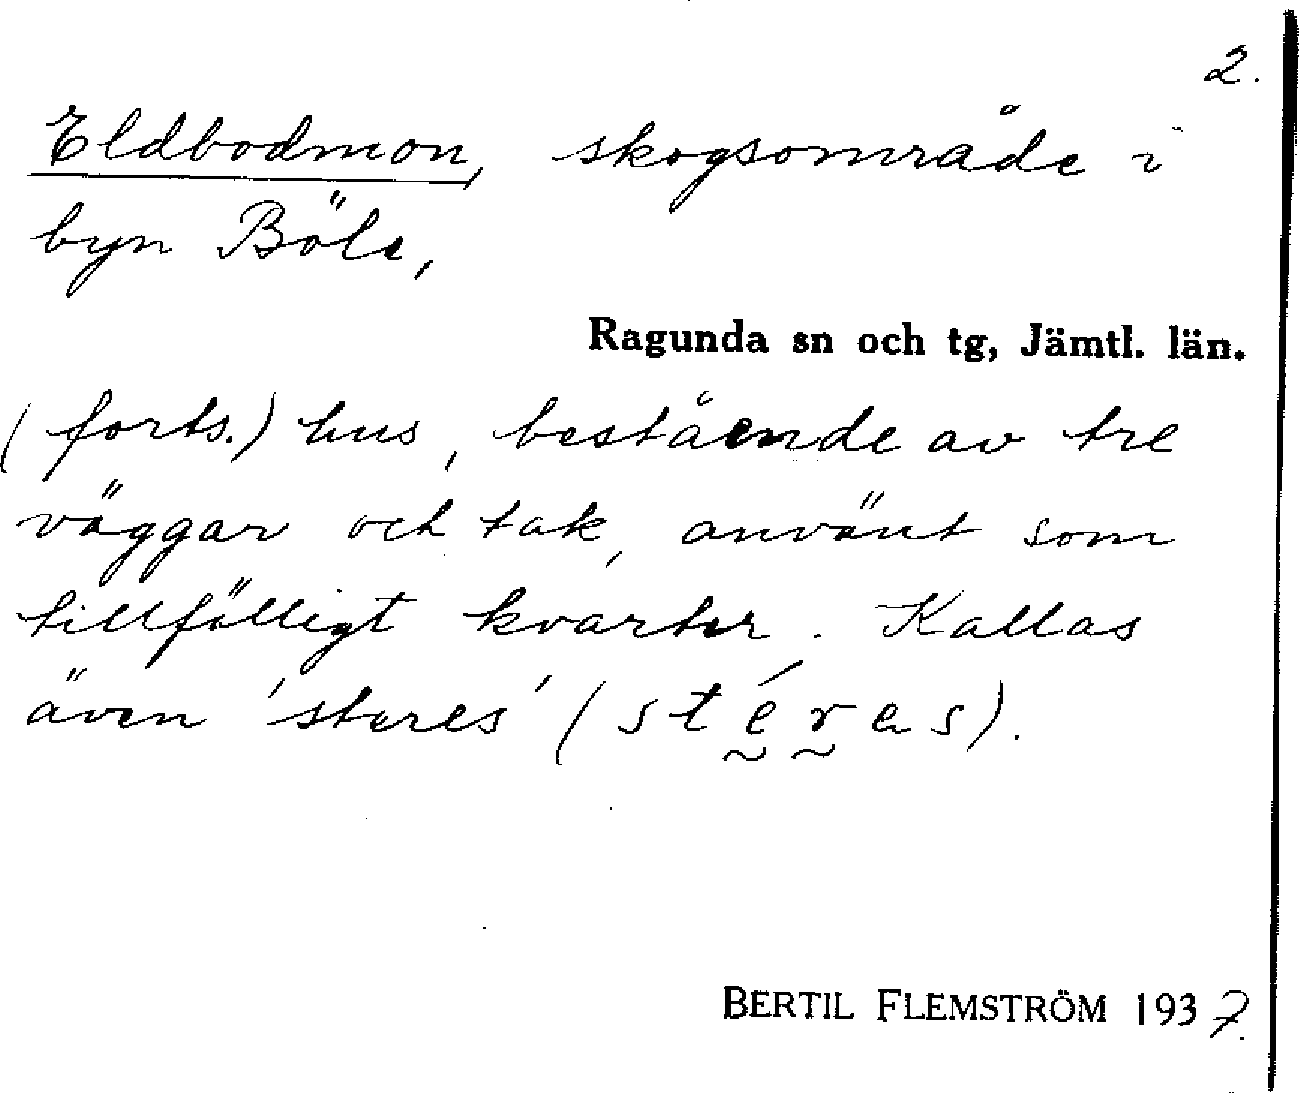 2.
Eldbodmon, skogsområde i
byn Böle,
Ragunda sn och tg, Jämtl. län.
(forts.) hus, bestående av tre
väggar och tak, använt som
tillfälligt kvarter. Kallas
även 'steres' (stéras).
BERTIL FLEMSTRÖM 1937.